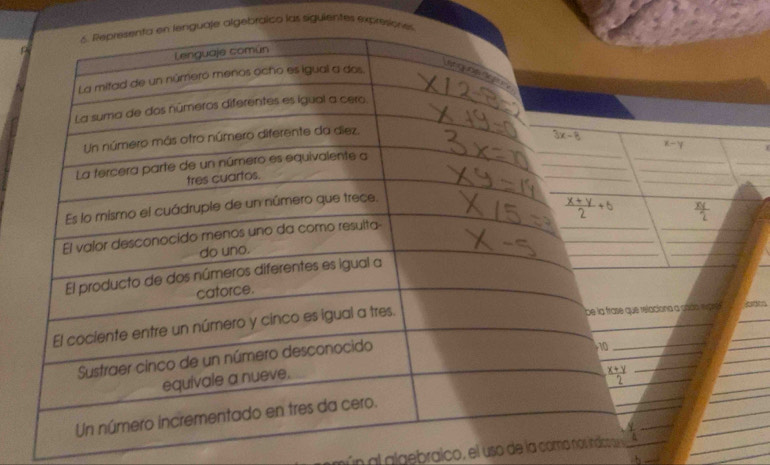 6. Representa en lenguaje algebraico las siguientes expresiones.
Lenguaje común
La mitad de un número menos ocho es igual a dos.
X/2-8=2
La suma de dos números diferentes es igual a cero.
X+y=0
Un número más otro número diferente da diez.
3x=10
La tercera parte de un número es equivalente a
tres cuartos.
xy=14
Es lo mismo el cuádruple de un número que trece.
X/5=3
El valor desconocido menos uno da como resulta-
do uno.
X-5
El producto de dos números diferentes es igual a
catorce.
El cociente entre un número y cinco es igual a tres.
Sustraer cinco de un número desconocido
equivale a nueve.
Un número incrementado en tres da cero.
3x-8
x-y
x+y/2 +6
xy/2
be la frase que relaciona a
+10
x+y/2
al algebraico, el uso de la coma nos indica